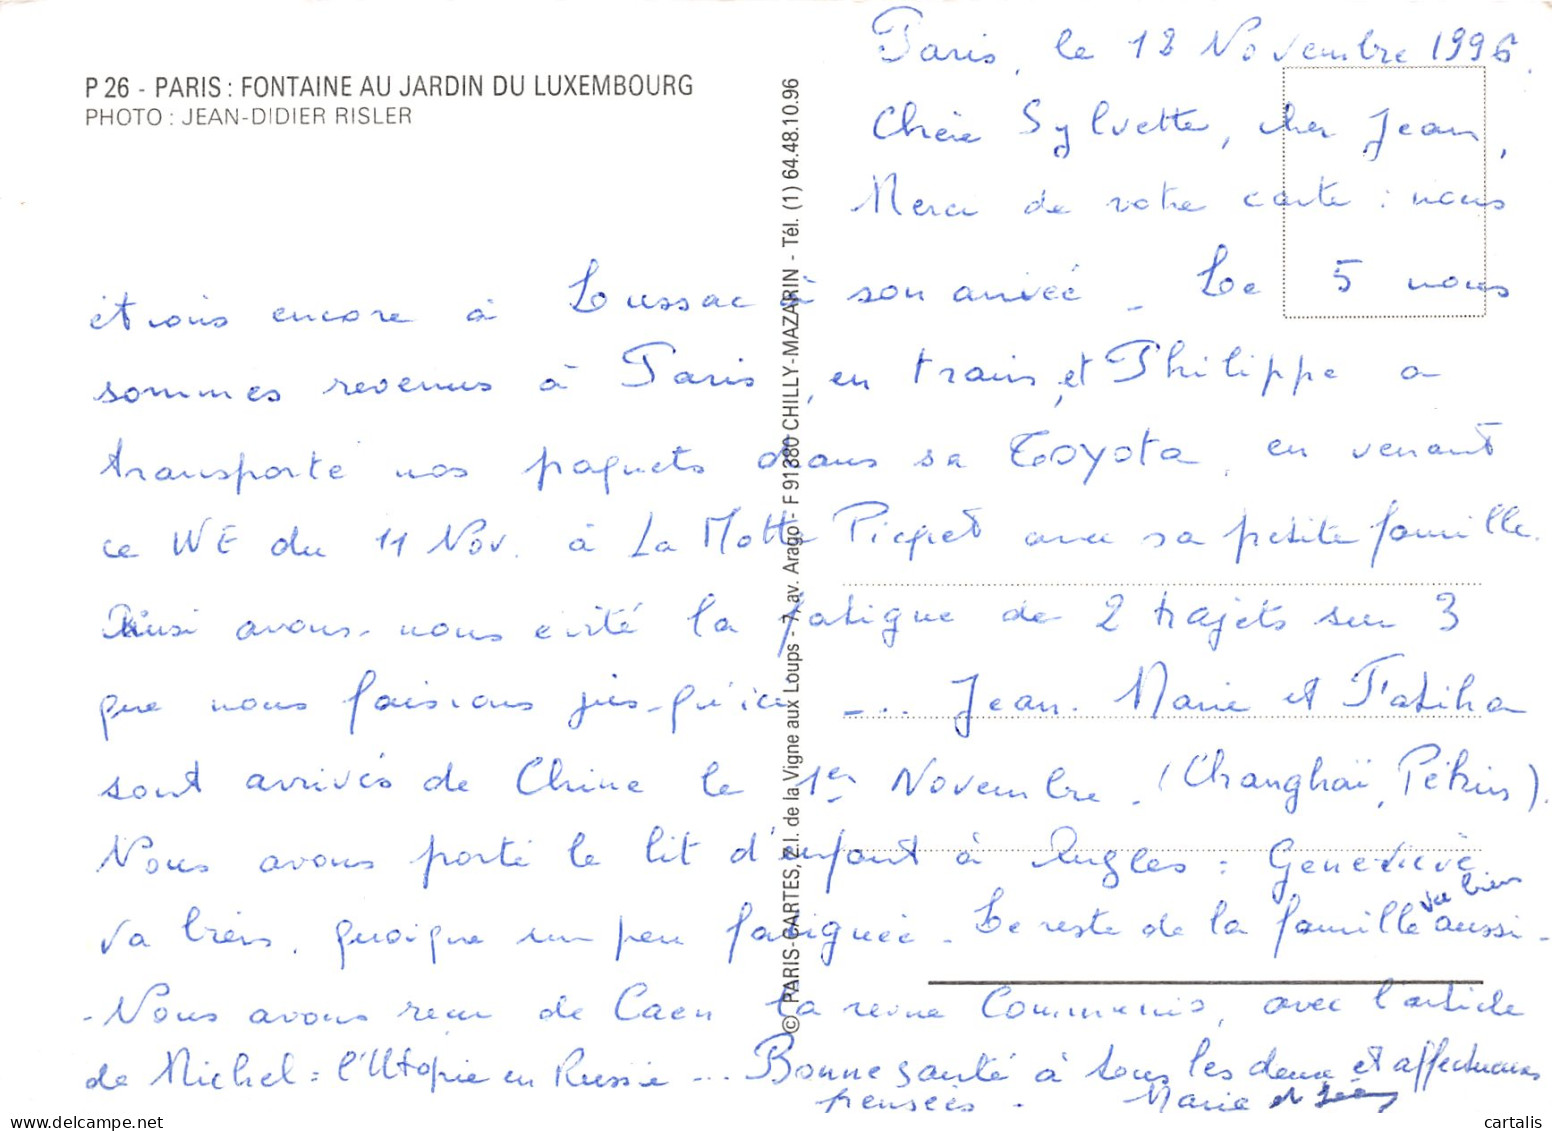 P 26 - PARIS : FONTAINE AU JARDIN DU LUXEMBOURG
PHOTO : JEAN-DIDIER RISLER
© PARIS-CARTES, Z.I. de la Vigne aux Loups - 7, av. Arago - F 91380 CHILLY-MAZARIN - Tél. (1) 64.48.10.96
Paris, le 18 Novembre 1996.
Chère Sylvette, cher Jean,
Merci de votre carte : nous
étions encore à Lussac à son arrivée - Le 5 nous
sommes revenus à Paris, en train, et Philippe a
transporté nos paquets dans sa Toyota, en venant
ce WE du 11 Nov. à La Motte Picquet avec sa petite famille.
Ainsi avons-nous évité la fatigue de 2 trajets sur 3
que nous faisions jusqu'ici -... Jean-Marie et Fatiha
sont arrivés de Chine le 1er Novembre. (Changhaï, Pékin).
Nous avons porté le lit d'enfant à Angles : Geneviève
va bien, quoique un peu fatiguée - Le reste de la famille va bien aussi -
- Nous avons reçu de Caen la revue Communis, avec l'article
de Michel : l'Utopie en Russie ... Bonne santé à tous les deux et affectueuses
pensées - Marie et Jean
cartalis